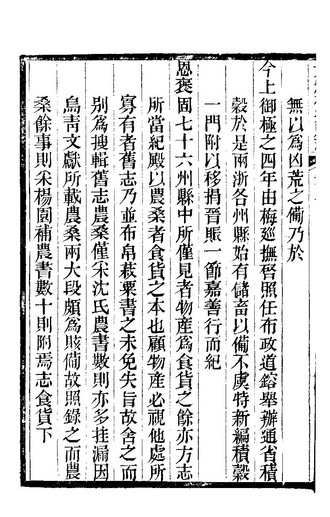 無以爲凶荒之備乃於
今上御極之四年由梅廵撫啓照任布政道鎔舉辦通省積
穀於是兩浙各州縣始有儲畜以備不虞特新編積穀
一門附以移捐晉賑一節嘉善行而紀
恩褒固七十六州縣中所僅見者物産爲食貨之餘亦方志
所當紀殿以農桑者食貨之本也顧物産必視他處所
寡有者舊志乃並布帛菽粟書之未免失旨故舍之而
別爲搜輯舊志農桑僅采沈氏農書數則亦多挂漏因
烏青文獻所載農桑兩大段頗爲賅備故照錄之而農
桑餘事則采楊園補農書數十則附焉志食貨下